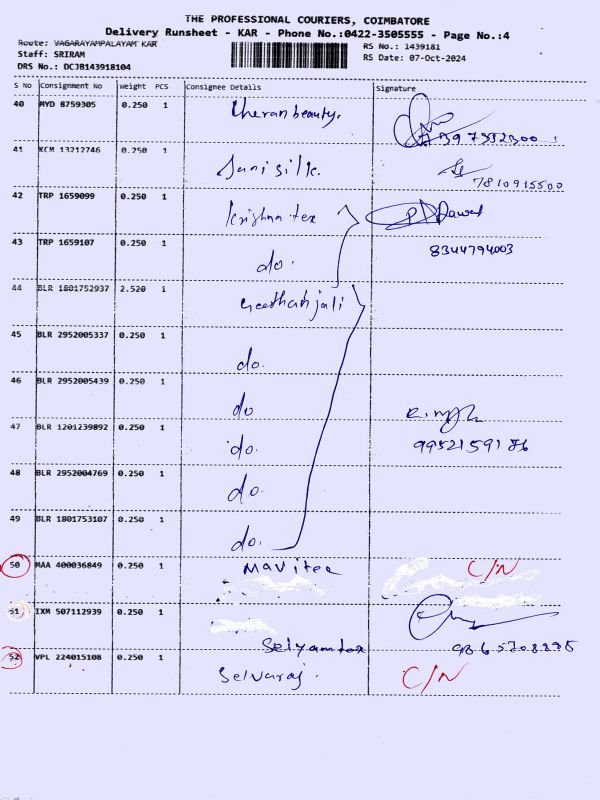 THE PROFESSIONAL COURIERS, COIMBATORE
Delivery Runsheet - KAR - Phone No.:0422-3505555 - Page No.:4
Route: VAGARAYAMPALAYAM KAR
Staff: SRIRAM
DRS No.: DCJB143918104
RS No.: 1439181
RS Date: 07-Oct-2024
S No Consignment No Weight PCS Consignee Details Signature
40 MYD 8759305 0.250 1 Cheran beauty.
41 KCM 13212746 0.250 1 Juni silk. 7810915500
42 TRP 1659099 0.250 1 Krishna tex
43 TRP 1659107 0.250 1 do. 8344794003
44 BLR 1801752937 2.520 1 Geethanjali
45 BLR 2952005337 0.250 1 do.
46 BLR 2952005439 0.250 1 do
47 BLR 1201239892 0.250 1 do. 9952159186
48 BLR 2952004769 0.250 1 do.
49 BLR 1801753107 0.250 1 do.
50 MAA 400036849 0.250 1 Mavitex C/N
51 IXM 507112939 0.250 1 Selyamtex
52 VPL 224015108 0.250 1 Selvaraj. C/N